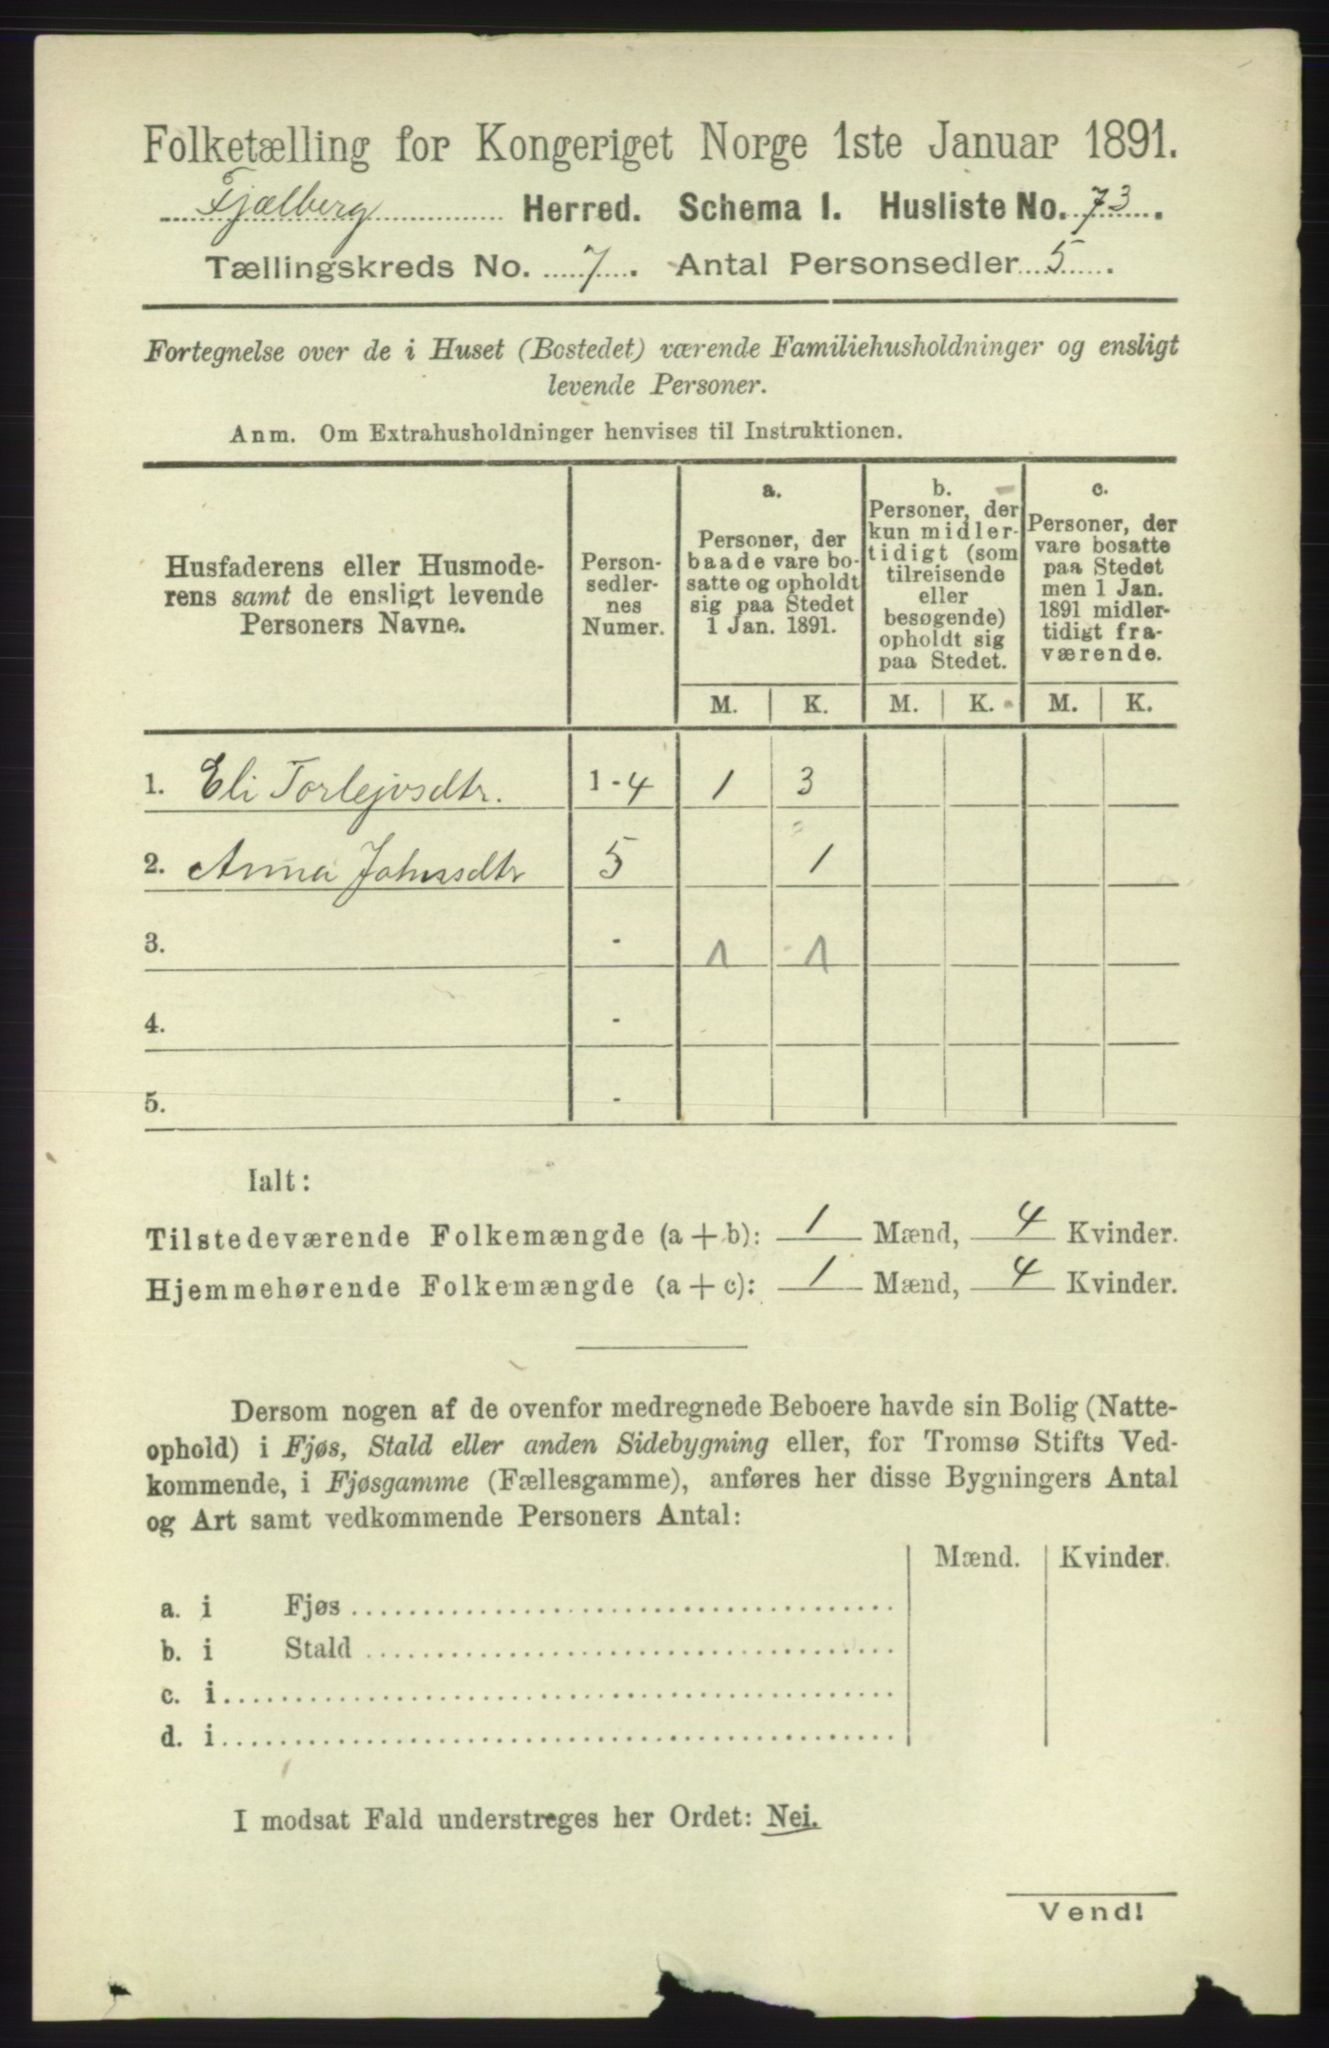 Folketælling for Kongeriget Norge 1ste Januar 1891.
Fjælberg Herred. Schema I. Husliste No. 73.
Tællingskreds No. 7. Antal Personsedler 5.
Fortegnelse over de i Huset (Bostedet) værende Familiehusholdninger og ensligt
levende Personer.
Anm. Om Extrahusholdninger henvises til Instruktionen.
Husfaderens eller Husmode-
rens samt de ensligt levende
Personers Navne.
Person-
sedler-
nes
Numer.
a.
Personer, der
baade vare bo-
satte og opholdt
sig paa Stedet
1 Jan. 1891.
b.
Personer, der
kun midler-
tidigt (som
tilreisende
eller
besøgende)
opholdt sig
paa Stedet.
c.
Personer, der
vare bosatte
paa Stedet
men 1 Jan.
1891 midler-
tidigt fra-
værende.
M. K. M. K. M. K.
1. Eli Torlejvsdtr. 1-4 1 3
2. Anna Johnsdtr 5 1
3. - 1 1
4. -
5. -
Ialt:
Tilstedeværende Folkemængde (a+b): 1 Mænd, 4 Kvinder.
Hjemmehørende Folkemængde (a+c): 1 Mænd, 4 Kvinder.
Dersom nogen af de ovenfor medregnede Beboere havde sin Bolig (Natte-
ophold) i Fjøs, Stald eller anden Sidebygning eller, for Tromsø Stifts Ved-
kommende, i Fjøsgamme (Fællesgamme), anføres her disse Bygningers Antal
og Art samt vedkommende Personers Antal:
Mænd. Kvinder.
a. i Fjøs
b. i Stald
c. i
d. i
I modsat Fald understreges her Ordet: Nei.
Vend!